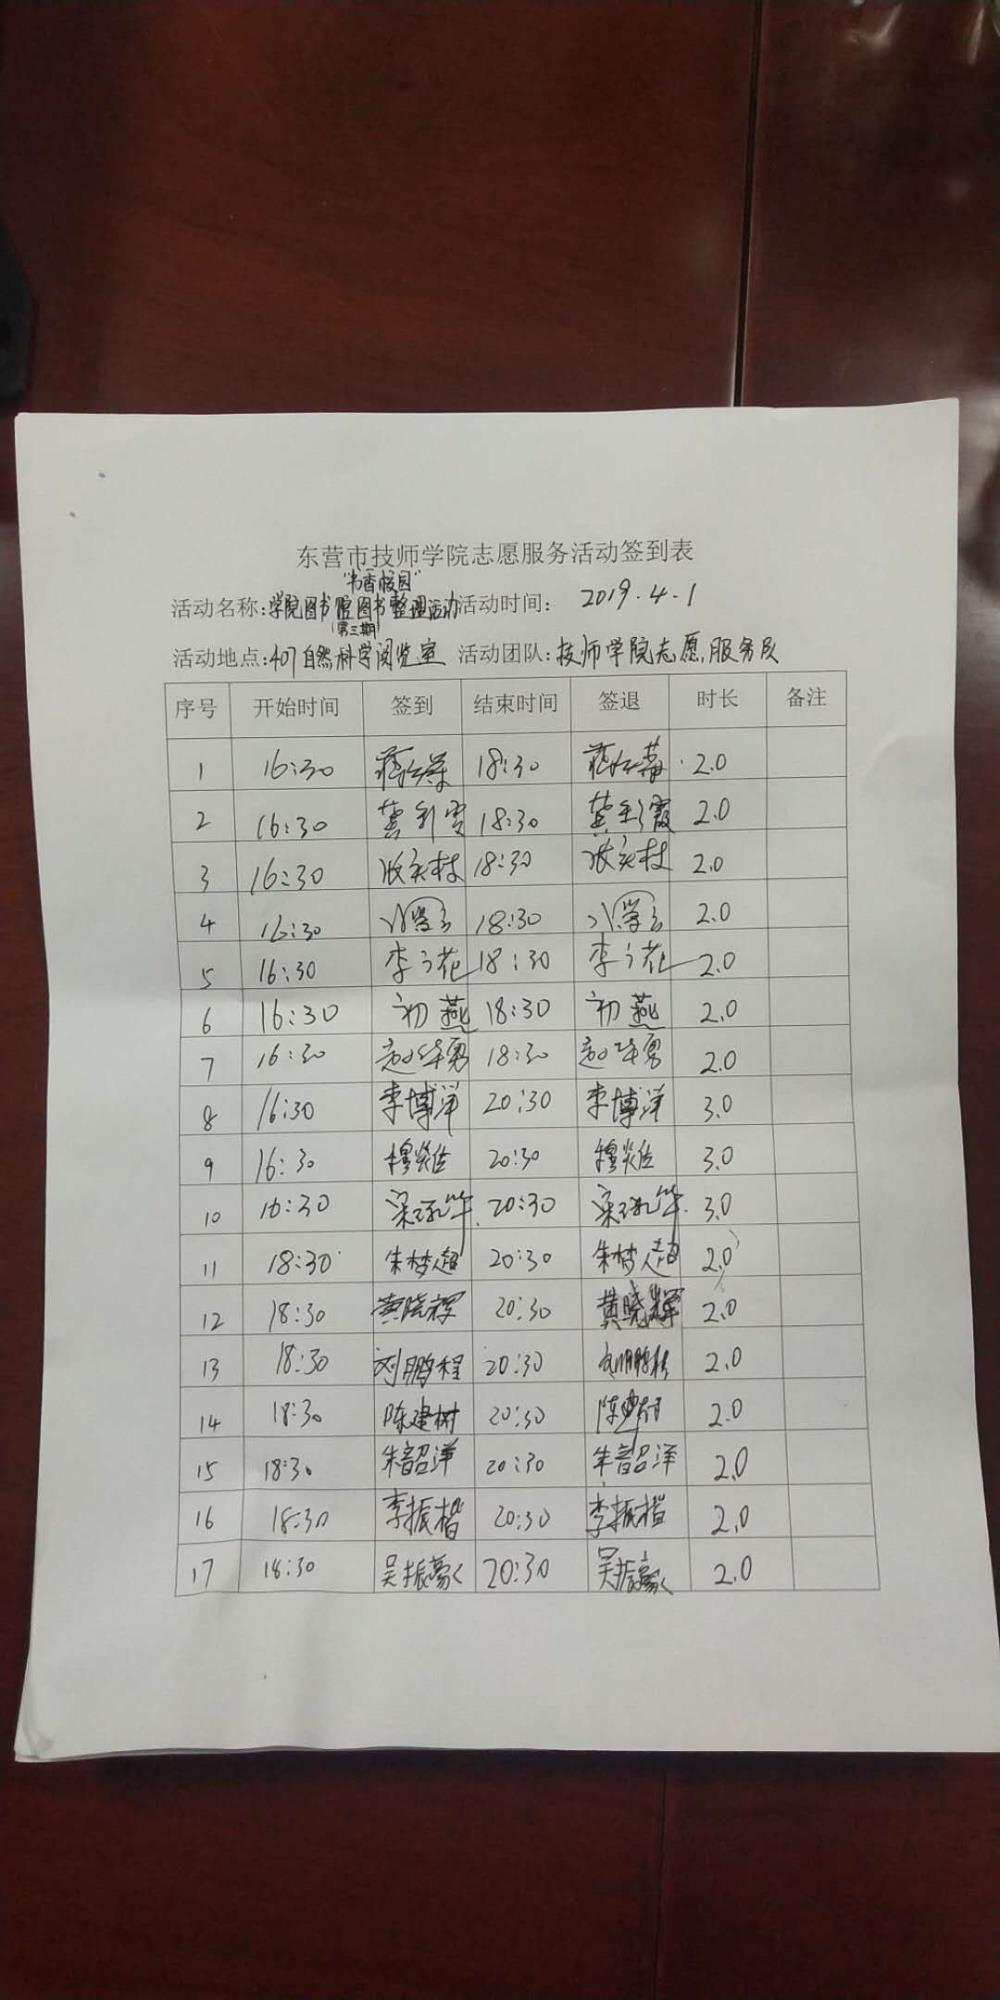 东营市技师学院志愿服务活动签到表
"书香校园"
活动名称:学院图书馆图书整理活动 活动时间: 2019.4.1
(第三期)
活动地点:407自然科学阅览室 活动团队:技师学院志愿服务队
序号 开始时间 签到 结束时间 签退 时长 备注
1 16:30 18:30 2.0
2 16:30 龚彩霞 18:30 龚彩霞 2.0
3 16:30 18:30 2.0
4 16:30 18:30 2.0
5 16:30 18:30 2.0
6 16:30 初燕 18:30 初燕 2.0
7 16:30 赵华勇 18:30 赵华勇 2.0
8 16:30 李博洋 20:30 李博洋 3.0
9 16:30 20:30 3.0
10 16:30 20:30 3.0
11 18:30 朱梦超 20:30 朱梦超 2.0
12 18:30 黄晓辉 20:30 黄晓辉 2.0
13 18:30 刘鹏程 20:30 刘鹏程 2.0
14 18:30 陈建树 20:30 陈建树 2.0
15 18:30 朱韶洋 20:30 朱韶洋 2.0
16 18:30 李振楷 20:30 李振楷 2.0
17 18:30 吴振豪 20:30 吴振豪 2.0